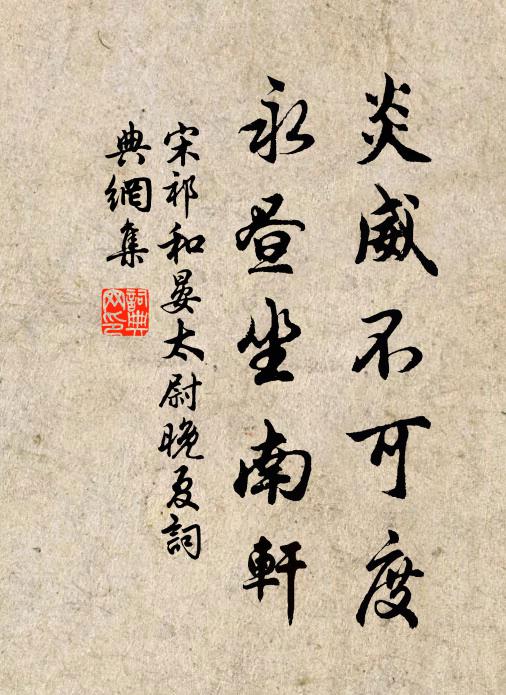 炎威不可度
永昼坐南軒
宋祁和晏太尉晚夏詞
典網集
詞典網印